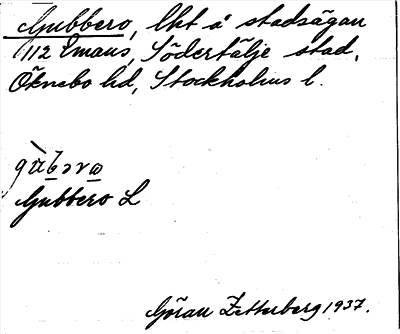 Gubbero, lht å stadsägan
112 Emaus, Södertälje stad,
Öknebo hd, Stockholms l.
Gubbero L
Göran Zetterberg 1937.